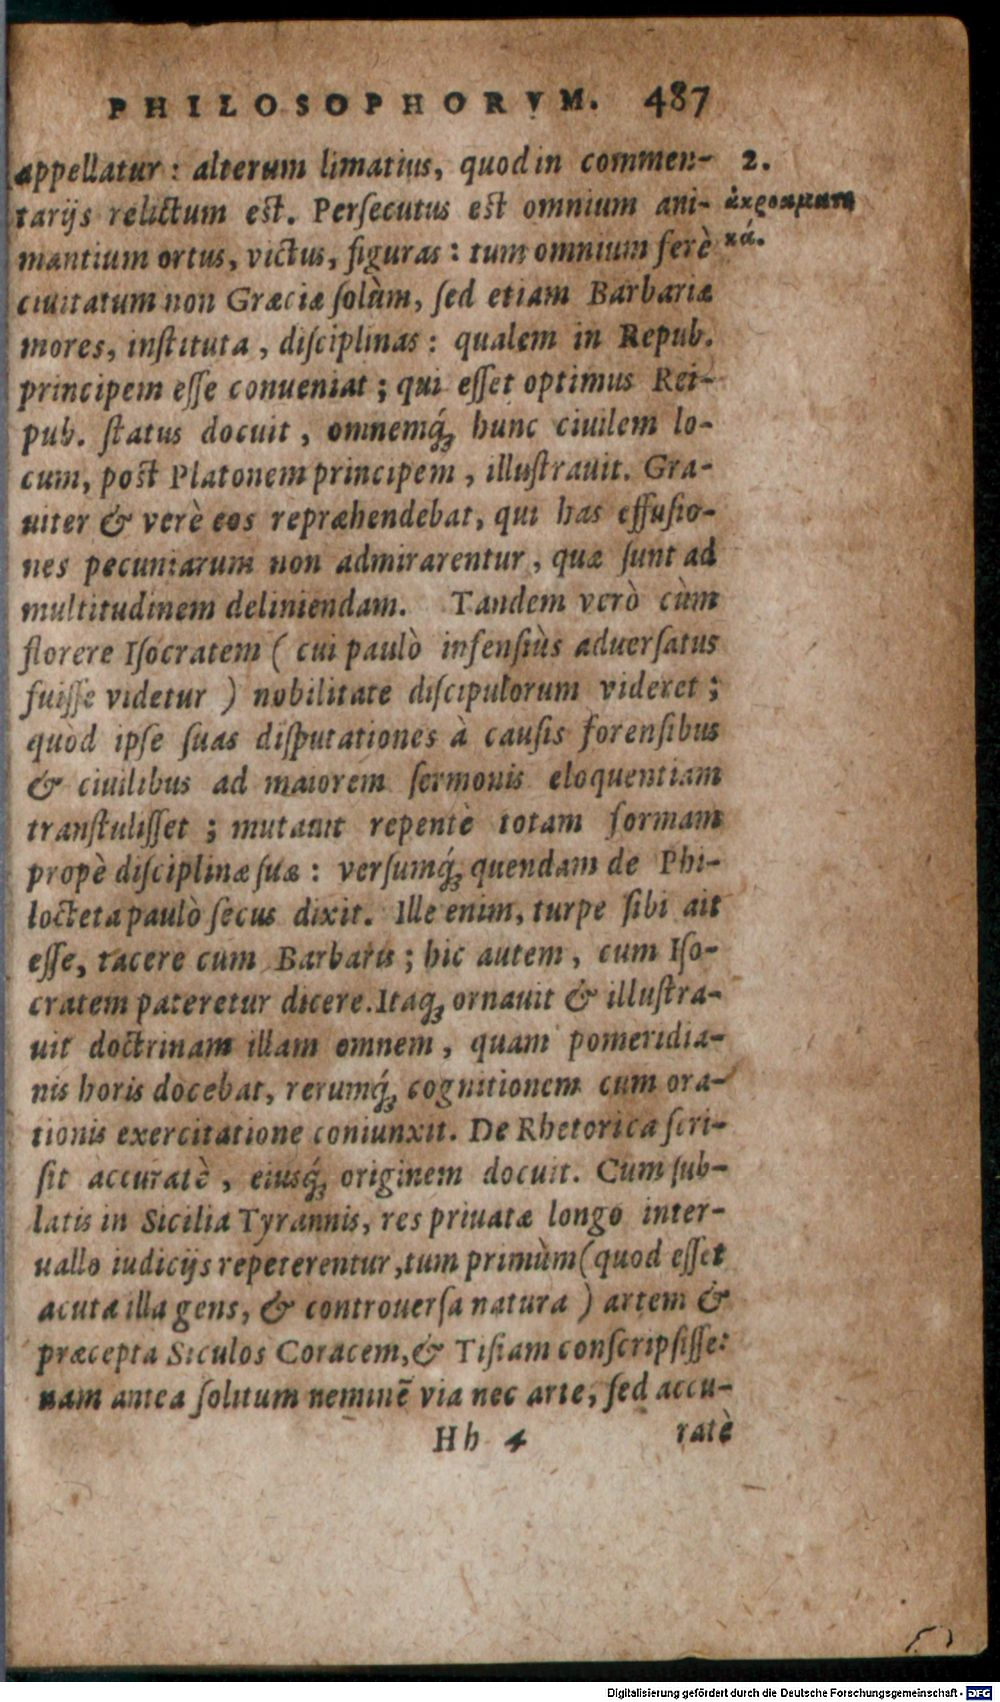 PHILOSOPHORVM. 487
appellatur: alterum limatius, quod in commen- 2.
tarijs relictum est. Persecutus est omnium ani- ἀκροαματι
mantium ortus, victus, figuras: tum omnium ferè κά.
ciuitatum non Græciæ solùm, sed etiam Barbariæ
mores, instituta, disciplinas: qualem in Repub.
principem esse conueniat; qui esset optimus Rei-
pub. status docuit, omnemq́; hunc ciuilem lo-
cum, post Platonem principem, illustrauit. Gra-
uiter & verè eos repræhendebat, qui has effusio-
nes pecuniarum non admirarentur, quæ sunt ad
multitudinem deliniendam. Tandem verò cùm
florere Isocratem (cui paulò infensiùs aduersatus
fuisse videtur) nobilitate discipulorum videret;
quòd ipse suas disputationes à causis forensibus
& ciuilibus ad maiorem sermonis eloquentiam
transtulisset; mutauit repentè totam formam
propè disciplinæ suæ: versumq́; quendam de Phi-
locteta paulò secus dixit. Ille enim, turpe sibi ait
esse, tacere cum Barbaris; hic autem, cum Iso-
cratem pateretur dicere. Itaq; ornauit & illustra-
uit doctrinam illam omnem, quam pomeridia-
nis horis docebat, rerumq́; cognitionem cum ora-
tionis exercitatione coniunxit. De Rhetorica scri-
sit accuratè, eiusq́; originem docuit. Cum sub-
latis in Sicilia Tyrannis, res priuatæ longo inter-
uallo iudicijs repeterentur, tum primùm (quod esset
acuta illa gens, & controuersa natura) artem &
præcepta Siculos Coracem, & Tisiam conscripsisse:
nam antea solitum neminē via nec arte, sed accu-
Hh 4 ratè
Digitalisierung gefördert durch die Deutsche Forschungsgemeinschaft - DFG